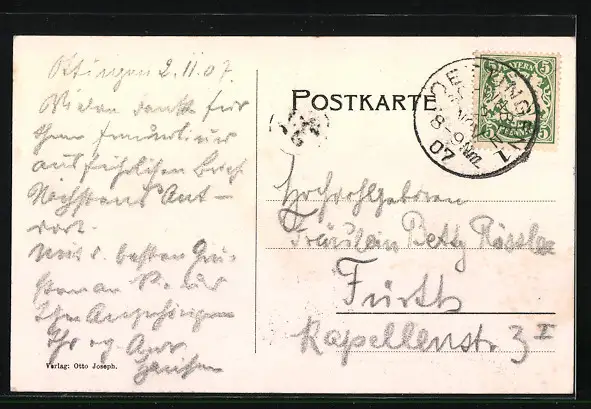 Ötingen 2.11.07.
Vielen Dank für
Ihren freundlichen
ausführlichen Brief.
Nächstens Ant-
wort.
Mit d. besten Grü-
ssen an
Ihre Angehörigen
Ihr
Verlag: Otto Joseph.
POSTKARTE
BAYERN
5 5
5 PFENNIG 5
8-9 Nm.
07
Hochwohlgeboren
Fräulein Betty Rössler
Fürth
Kapellenstr. 3 I